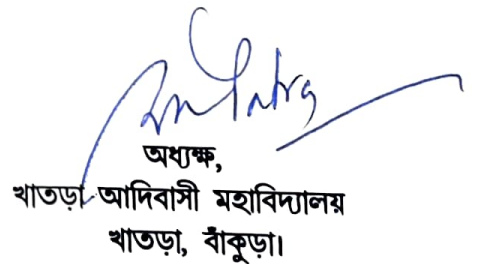 অধ্যক্ষ,
খাতড়া আদিবাসী মহাবিদ্যালয়
খাতড়া, বাঁকুড়া।